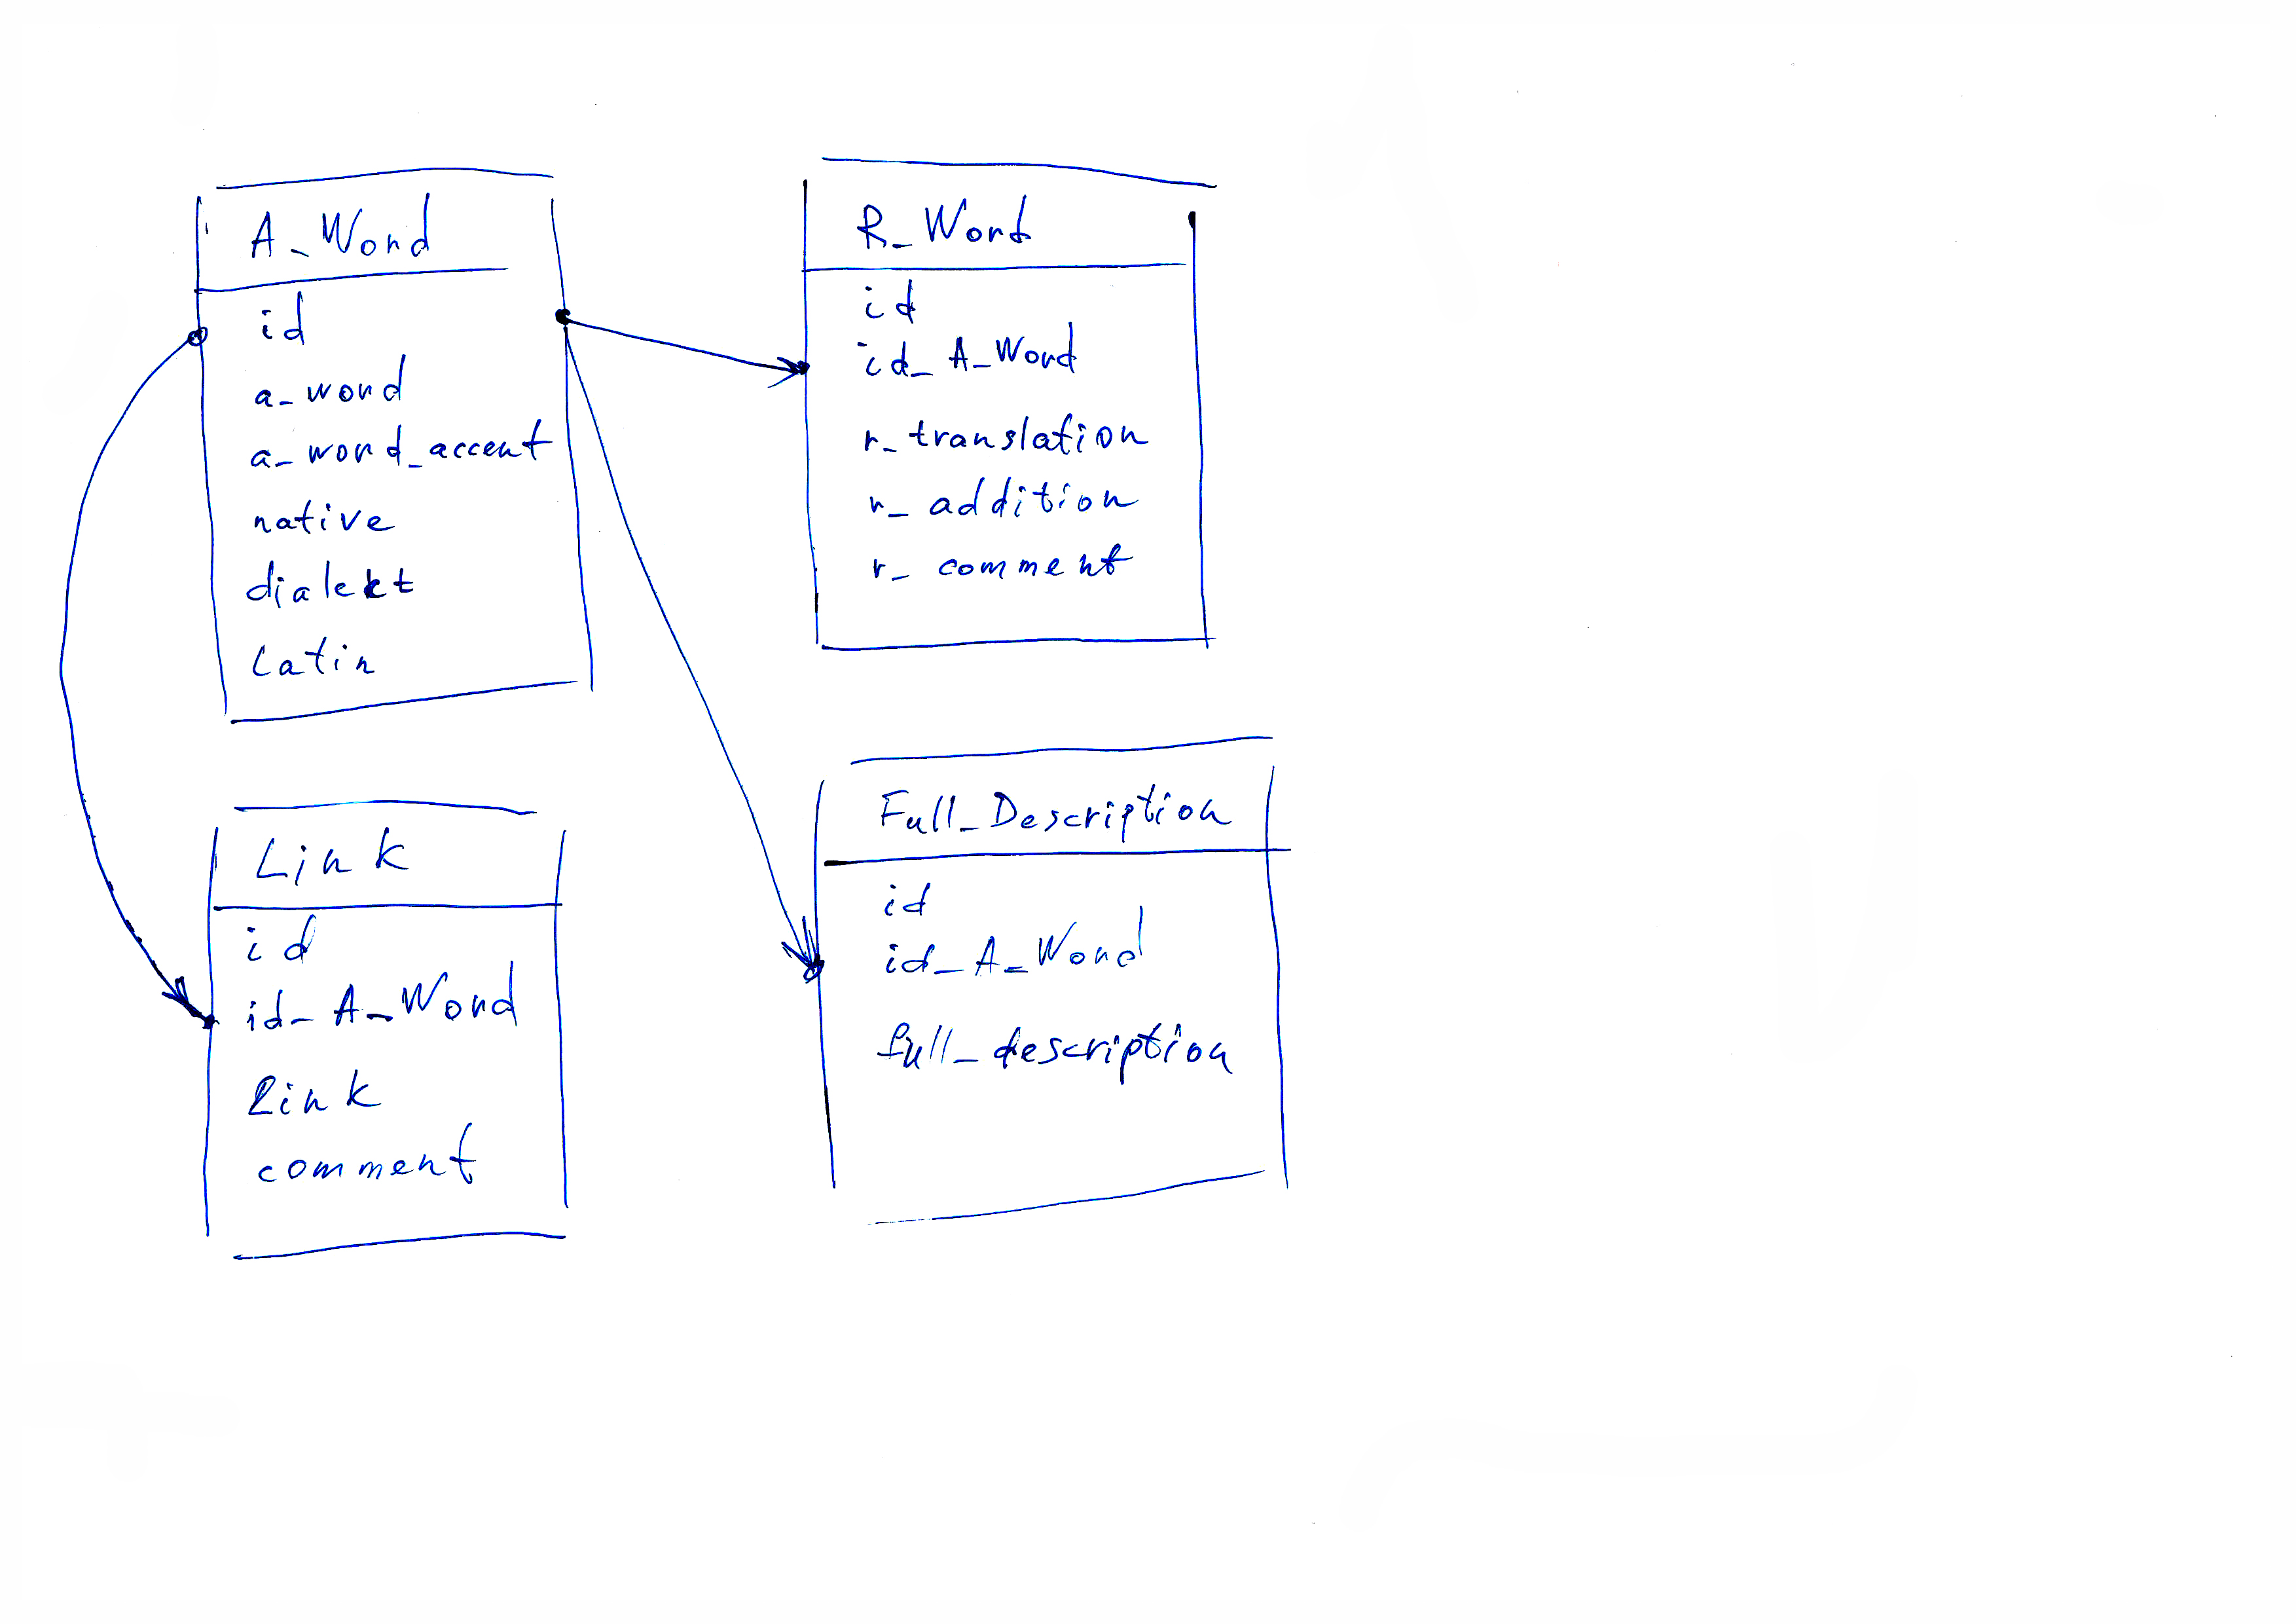 A_Word
id
a_word
a_word_accent
native
dialekt
Latin
R_Word
id
id_A_Word
r_translation
r_addition
r_comment
Link
id
id_A_Word
link
comment
Full_Description
id
id_A_Word
full_description